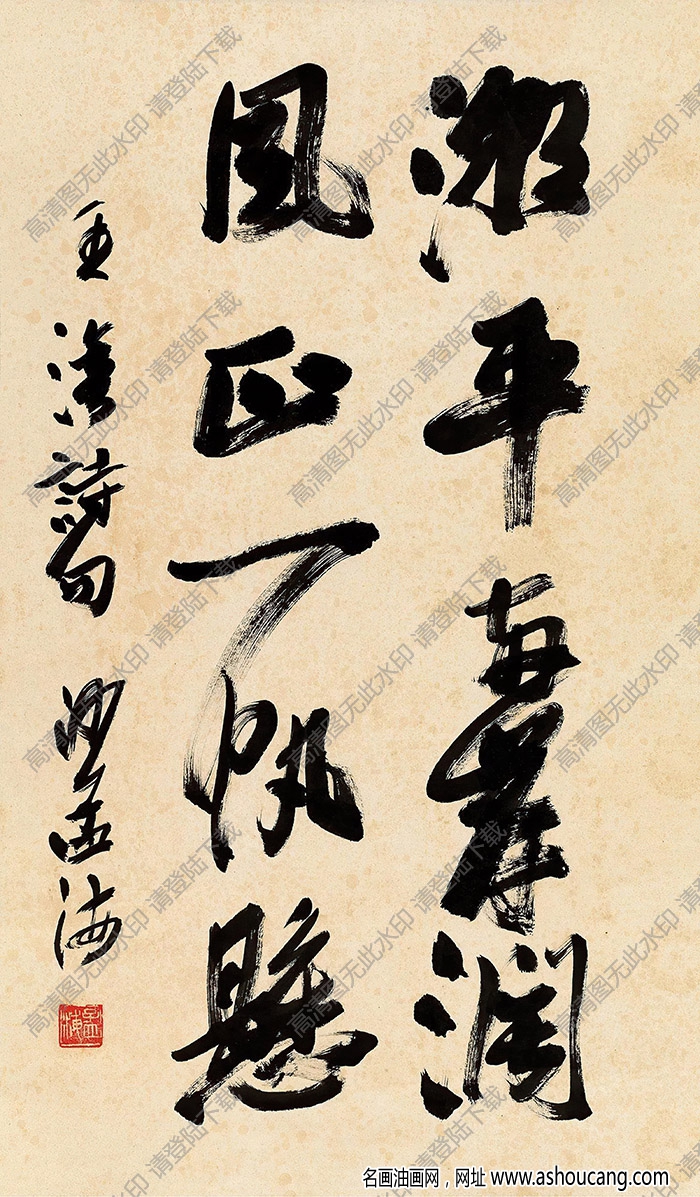 潮平兩岸濶
風正一帆懸
王灣詩句 沙孟海
高清图无此水印 请登陆下载
名画油画网，网址 www.ashoucang.com